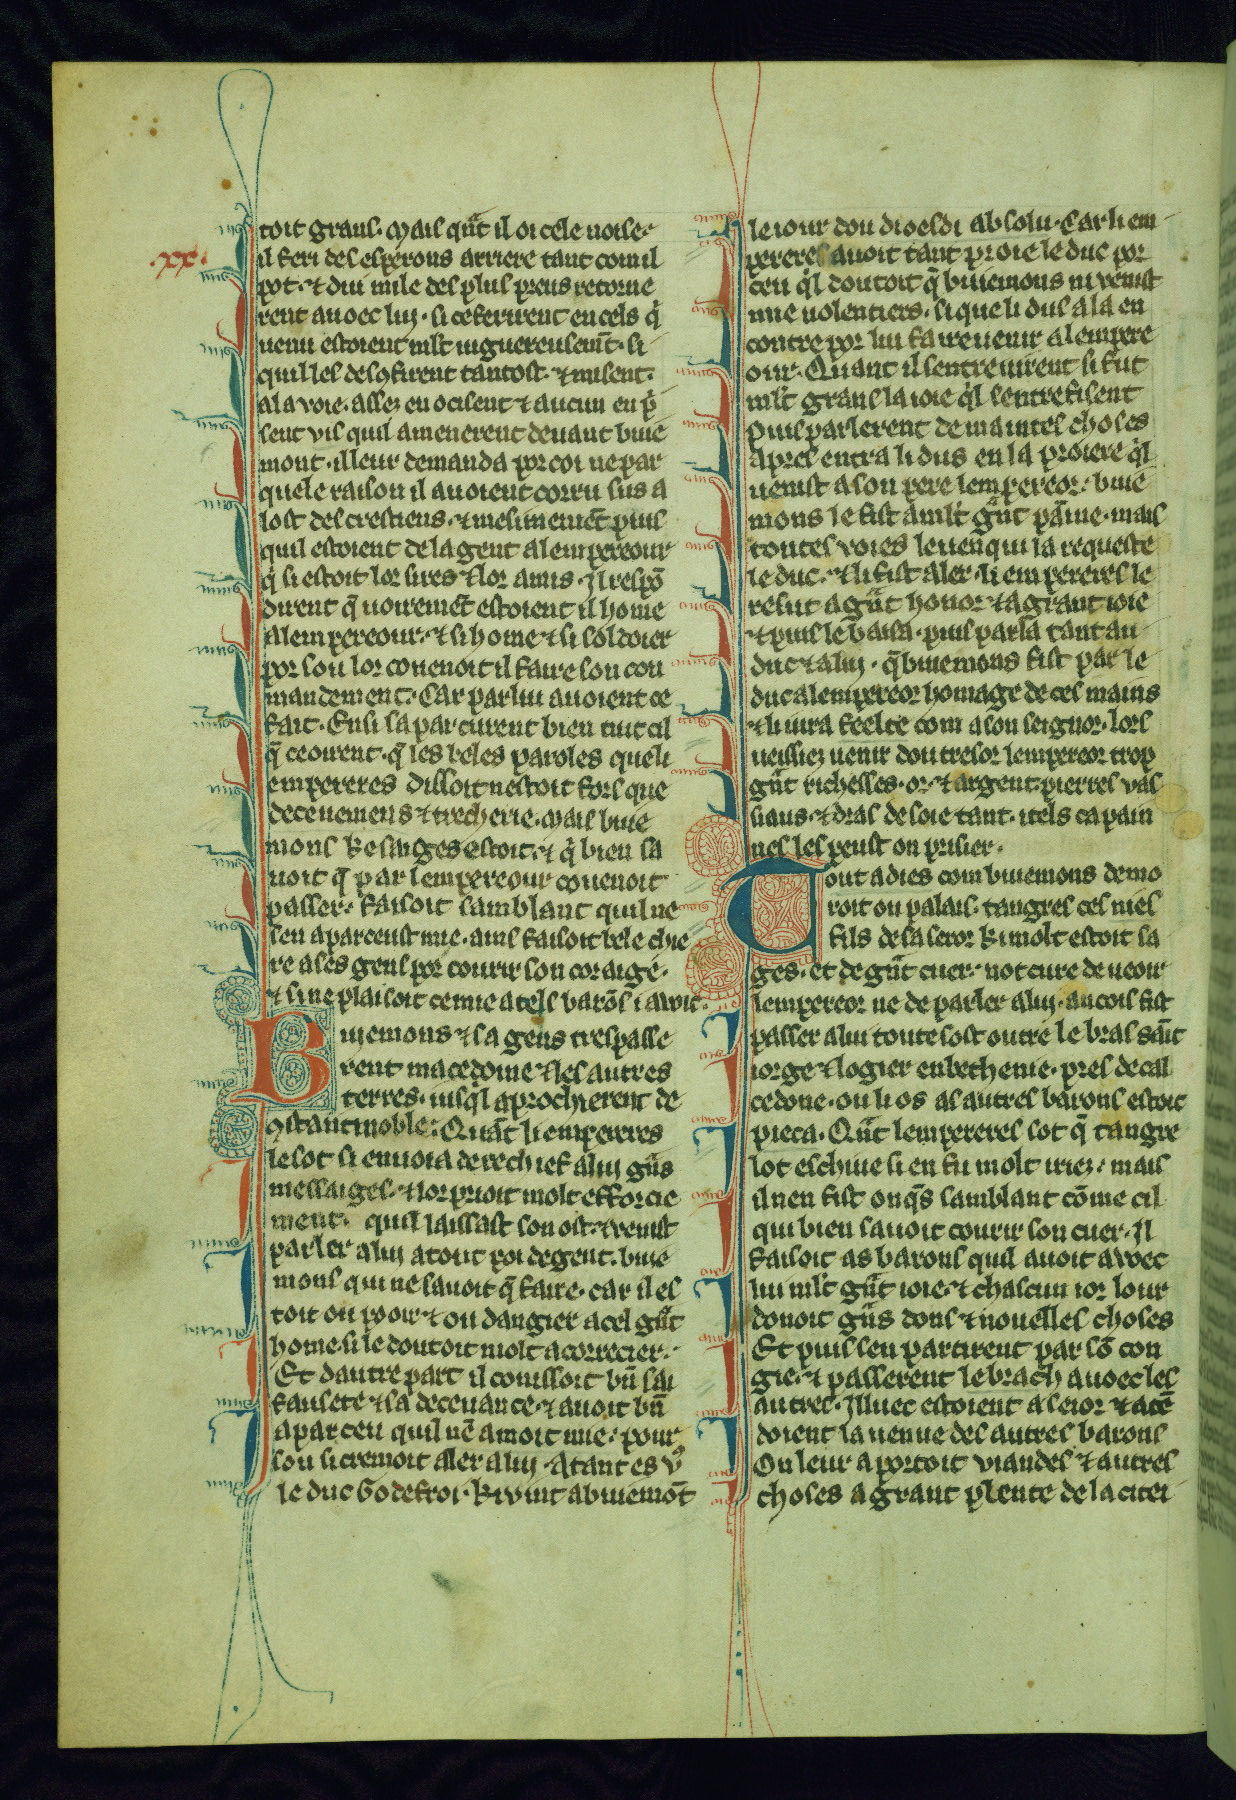 .xx.
toit grans. mais qua̅t il oi cele noise
il feri des esperons arriere tant com il
pot. ⁊ diu mile des plus preus retorne
rent auoec lui. si ceferirent en cels q̅
uenu estoient mlt uiguereusem̅t. si
quil les desꝯfirent tantost. ⁊ misent
a la voie. assez en ocisent ⁊ aucun en p̅
sent vis quil amenerent deuant buie
mont. il leur demanda por coi ne par
quele raison il auoient corru sus a
lost des crestiens. ⁊ meismeme̅t puis
quil estoient de la gent a lempereour
q̅ si estoit lor sires ⁊ lor amis. Il respo̅
dirent q̅ uoireme̅t estoient il home
a lempereour. ⁊ si home ⁊ si soldoier
por sou lor couenoit il faire son cou
mandement. Car par lui auoient ce
fait. Ensi saparcurent bien tuit cil
q̅ ce oirent. q̅ les beles paroles que li
empereres dissoit nestoit fors que
deceuemens ⁊ trecherie. Mais buie
mons ke saiges estoit. ⁊ q̅ bien sa
uoit q̅ par lempereour couenoit
passer. faisoit samblant quil ne
sen aparceust mie. ains faisoit bele chie
re a ses gens por courir son coraige.
⁊ si ne plaisoit ce mie a tels baro̅s i auoit.
Buiemons ⁊ sa gens trespasse
rent macedoine ⁊ les autres
terres. iusq̅l aprochierent de
ꝯstantinoble. Qua̅t li empereres
le sot si enuoia de rechief a lui g̅ns
messaiges. ⁊ lor prioit molt efforcie
ment. quil laissast son ost. ⁊ venist
parler a lui a tout poi de gent. buie
mons qui ne sauoit q̅ faire. car il es
toit ou pooir ⁊ ou dangier a cel g̅nt
home. si le doutoit molt a correcier.
Et dautre part il conissoit bn̅ sai
fausete ⁊ sa deceuance. ⁊ auoit bn̅
aparceu quil ne̅ amoit mie. pour
sou si cremoit aler a lui. Atant es v̅
le duc Godefroi. ki vint a buiemo̅t
le iour dou dioesdi absolu. Car li em
pereres auoit tant proie le duc por
ceu q̅l doutoit q̅ buiemons ni venist
mie uolentiers. si que li dus ala en
contre por lui faire uenir a lempere
our. Quant il sentreuirent si fut
mlt grans la ioie q̅l sentrefisent
Puis parlerent de maintes choses
apres entra li dus en la proiere q̅l
uenist a son pere lempereor. buie
mons le fist a mlt g̅nt paine. mais
toutes voies le uenqui la requeste
le duc. ⁊ li fist aler. li empereres le
resut a g̅nt honor ⁊ a grant ioie
⁊ puis le baisa. puis parla tant au
duc ⁊ a lui. q̅ buiemons fist par le
duc a lempereor homage de ces mains
⁊ li iura feelte com a son seignor. lors
ueissiez uenir dou tresor lempereor trop
g̅nt richesses. or. ⁊ argent. pierres vas
siaus. ⁊ dras de soie tant. itels ca pain
nes les peust on prisier.
Tout adies com buiemons demo
roit ou palais. tangres ces nies
fils de sa seror ki molt estoit sa
ges. et de g̅nt cuer. not cure de ueoir
lempereor ne de parler a lui. ancois fist
passer a lui toute sost outre le bras sai̅t
iorge ⁊ logier en bethenie. pres de cal
cedone. ou li os as autres barons estoit
pieca. Qua̅t lempereres sot q̅ tangre
lot eschiue si en fu molt iriez. mais
il nen fist onq̅s samblant co̅me cil
qui bien sauoit courir son cuer. Il
faisoit as barons quil auoit avoec
lui mlt g̅nt ioie. ⁊ chascun ior lour
donoit g̅ns dons ⁊ nouelles choses
Et puis sen partirent par so̅ con
gie. ⁊ passerent le brach auoec les
autres. Illuec estoient a seior ⁊ ate̅
doient la uenue des autres barons
On leur aportoit viandes ⁊ autres
choses a grant plente de la citei